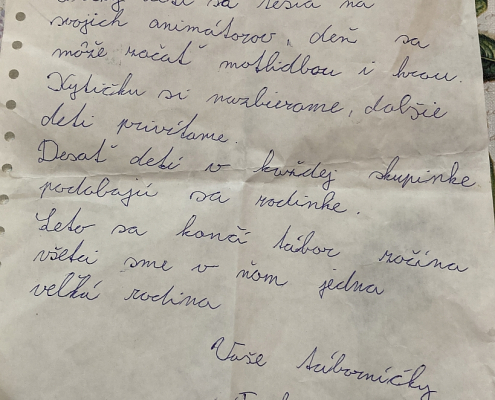 sa tešia na
svojich animátorov, deň sa
môže začať motlidbou i hrou.
Kytičku si nazbierame, ďalšie
deti privítame.
Desať detí v každej skupinke
podobajú sa rodinke.
Leto sa končí tábor začína
všetci sme v ňom jedna
veľká rodina
Vaše táborníčky